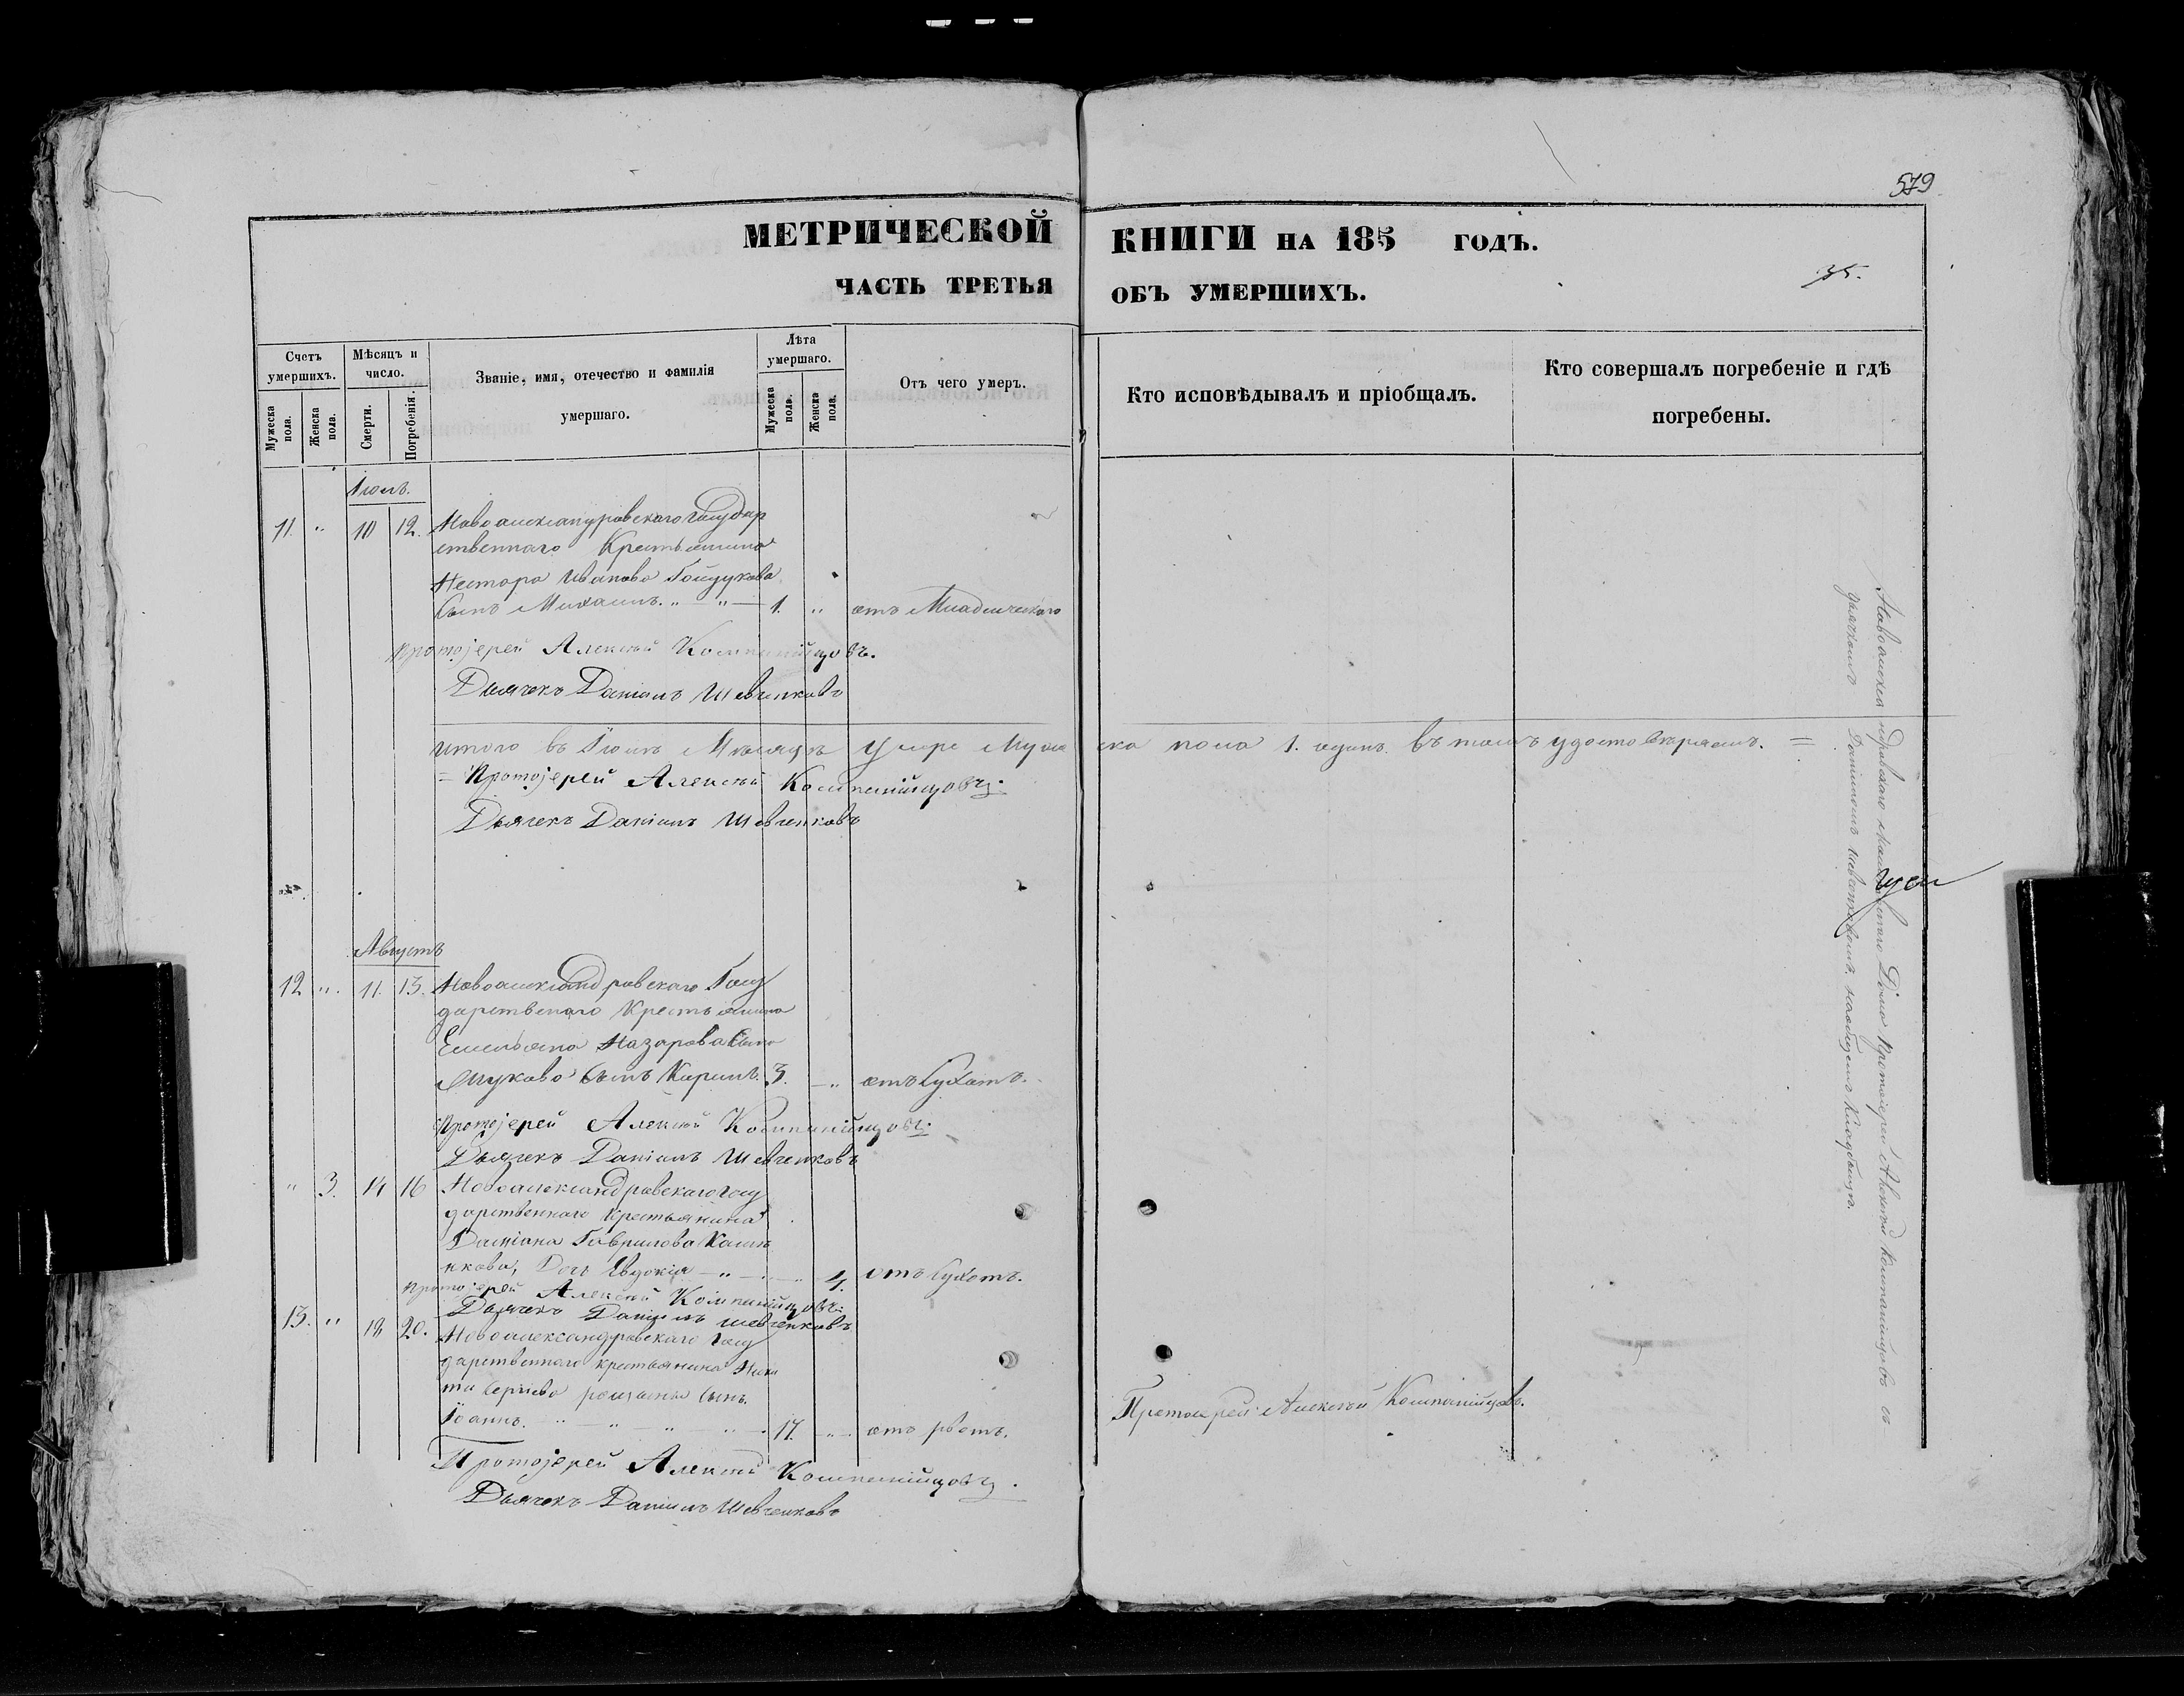 579
МЕТРИЧЕСКОЙ КНИГИ НА 185 ГОДЪ.
ЧАСТЬ ТРЕТЬЯ ОБЪ УМЕРШИХЪ.
35.
Счетъ умершихъ.
Мужеска пола.
Женска пола.
Мѣсяцъ и число.
Смерти.
Погребенія.
Званіе, имя, отечество и фамилія умершаго.
Лѣта умершаго.
Мужеска пола.
Женска пола.
Отъ чего умеръ.
Кто исповѣдывалъ и пріобщалъ.
Кто совершалъ погребеніе и гдѣ погребены.
Іюль.
11. " 10 12. Новоалександровскаго государ
ственнаго Крестьянина
Нестора Иванова Гойдукова
сынъ Михаилъ. " — " — 1. " отъ Младенческаго
Протоіерей Алексѣй Компанійцовъ.
Дьячекъ Даніилъ Шевченковъ
итого въ Іюлѣ Мѣсяцѣ умре мужеска пола 1. одинъ. въ томъ удостовѣряемъ. =
= Протоіерей Алексѣй Компанійцовъ.
Дьячекъ Даніилъ Шевченковъ
Августъ
12 " 11. 13. Новоалександровскаго Госу
дарственаго Крестьянина
Емельяна Назарова
сынъ Кирилъ. 3. — " отъ Сухотъ.
Протоіерей Алексѣй Компанійцовъ.
Дьячекъ Даніилъ Шевченковъ
" 3. 14 16 Новоалександровскаго госу
дарственнаго крестьянина
Даміана Гаврилова
Дочь Евдокія — " — 4. отъ Сухотъ.
Протоіерей Алексѣй Компанійцовъ.
Дьячекъ Даніилъ Шевченковъ
13. " 18 20. Новоалександровскаго госу
дарственнаго крестьянина Ники
ты Сергіева сынъ.
Іоаннъ. " — " — " — 17. " отъ рвотъ.
Протоіерей Алексѣй Компанійцовъ.
Протоіерей Алексѣй Компанійцовъ.
Дьячекъ Даніилъ Шевченковъ
Новоалександровскаго Дома Протоіерей Алексѣй Компанійцовъ съ
дьячкомъ Даніиломъ Шевченковымъ на общемъ Кладбищѣ.